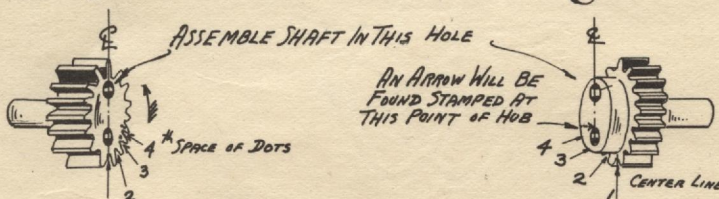 ℄
ASSEMBLE SHAFT IN THIS HOLE
℄
AN ARROW WILL BE
FOUND STAMPED AT
THIS POINT OF HOB
4 # SPACE OF DOTS
3
2
4
3
2
1
CENTER LINE